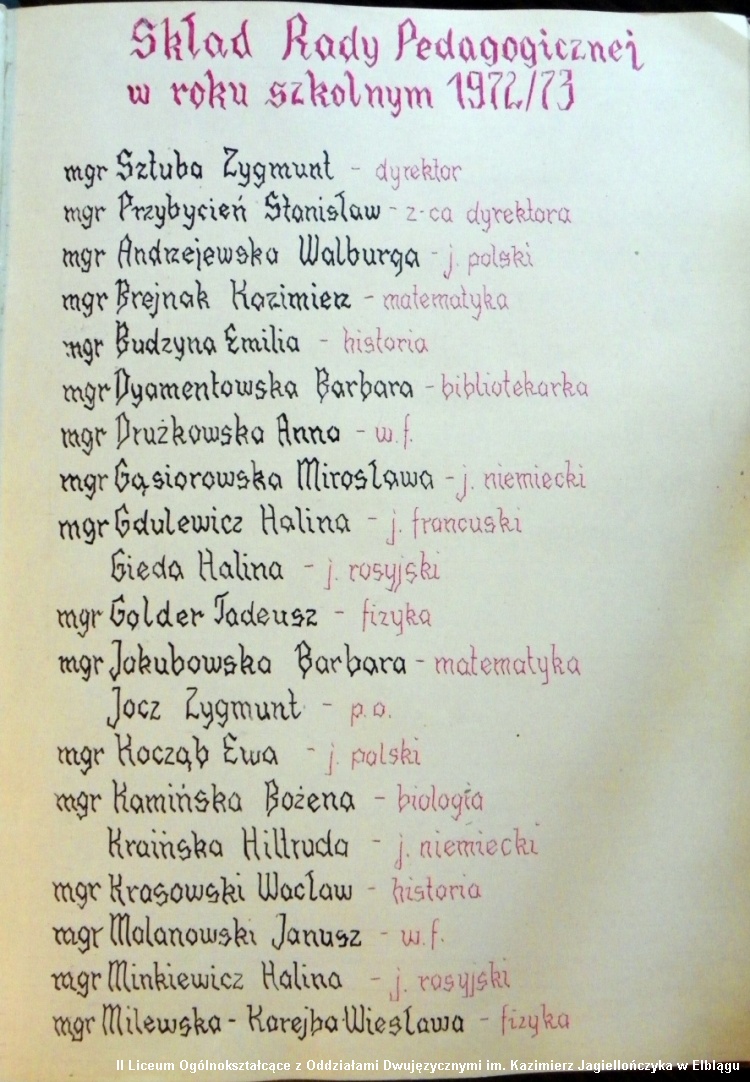 Skład Rady Pedagogicznej
w roku szkolnym 1972/73
mgr Sztuba Zygmunt - dyrektor
mgr Przybycień Stanisław - z-ca dyrektora
mgr Andrzejewska Walburga - j. polski
mgr Brejnak Kazimierz - matematyka
mgr Budzyna Emilia - historia
mgr Dyamentowska Barbara - bibliotekarka
mgr Drużkowska Anna - w.f.
mgr Gąsiorowska Mirosława - j. niemiecki
mgr Gdulewicz Halina - j. francuski
Gieda Halina - j. rosyjski
mgr Golder Tadeusz - fizyka
mgr Jakubowska Barbara - matematyka
Jocz Zygmunt - p.o.
mgr Kocząb Ewa - j. polski
mgr Kamińska Bożena - biologia
Kraińska Hiltruda - j. niemiecki
mgr Krasowski Wacław - historia
mgr Malanowski Janusz - w.f.
mgr Minkiewicz Halina - j. rosyjski
mgr Milewska - Karejba Wiesława - fizyka
II Liceum Ogólnokształcące z Oddziałami Dwujęzycznymi im. Kazimierz Jagiellończyka w Elblągu